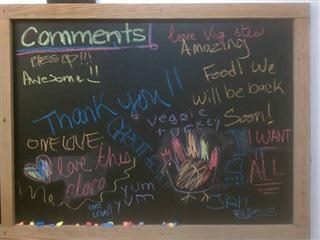 Comments
love Veg stew
Amazing
Bless up!!!
Food! We
Awesome!!
will be back
Soon!
Thank you!!
veggie
turkey
ONE LOVE
I WANT
I love this
place
ALL
yum
yum
JAH
Bless